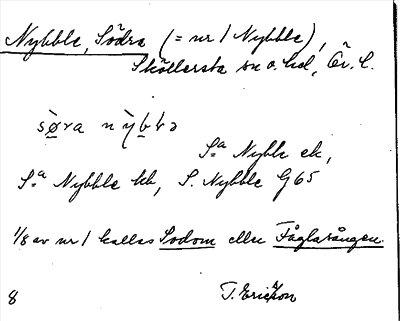 Nybble, Södra (= nr 1 Nybble),
Sköllersta sn o. hd, Ör. l.
sø̀ra nỳbbə
S:a Nybble ek,
S:a Nybble kb, S. Nybble G65
1/8 av nr 1 kallas Sodom eller Fåglasången.
8 T. Ericson